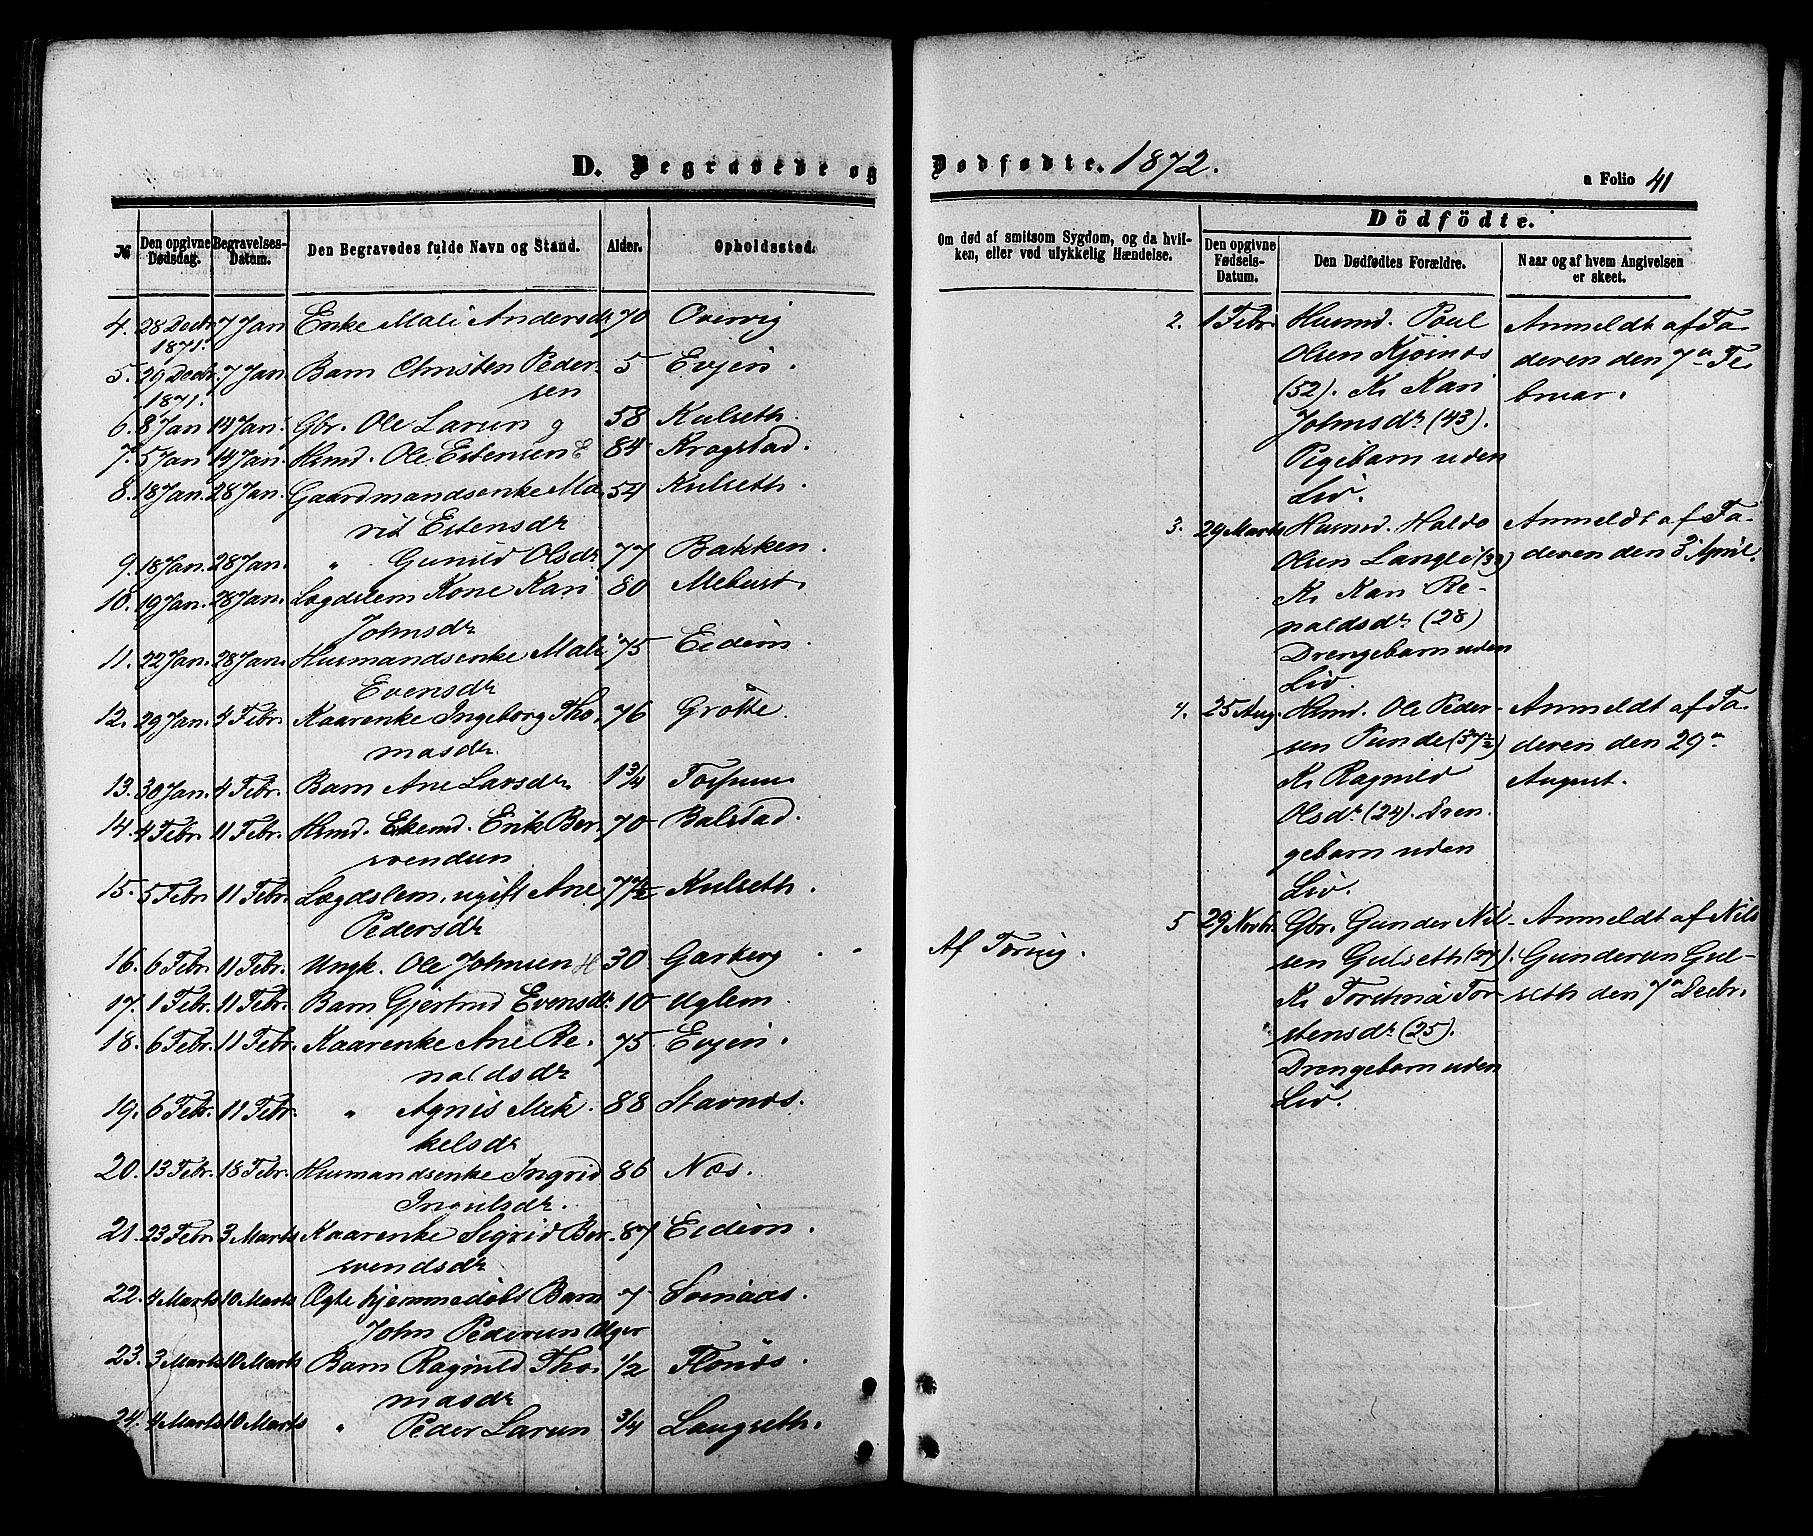 D. Begravede og Dødfødte. 1872.
a Folio 41
№
Den opgivne Dødsdag.
Begravelses-Datum.
Den Begravedes fulde Navn og Stand.
Alder.
Opholdssted.
4. 28 Decbr 7 Jan Enke Mali Andersdr 70 Overvig
1871.
5. 29 Decbr 7 Jan Barn Christen Peder- 5 Evjen.
1871. sen
6. 8 Jan 14 Jan. Gbr. Ole Larsen 58 Kulseth.
7. 5 Jan 14 Jan. Hsmd. Ole Estensen 84 Kragstad.
8. 18 Jan. 28 Jan. Gaardmandsenke Ma- 54 Kulseth.
rit Estensdr
9. 18 Jan. 28 Jan. " Gunild Olsdr 77 Bakken.
10. 19 Jan. 28 Jan. Lægdslem Kone Kari 80 Mebust.
Johnsdr
11. 22 Jan. 28 Jan. Husmandsenke Mali 75 Eidem.
Evensdr
12. 29 Jan. 4 Febr. Kaarenke Ingeborg Tho- 76 Grøtte.
masdr
13. 30 Jan. 4 Febr. Barn Ane Larsdr 1 3/4
14. 4 Febr. 11 Febr. Hsmd. Ekemd. Erik Ber- 70 Balstad.
svendsen
15. 5 Febr 11 Febr. Lægdslem, ugift Ane 77 1/2 Kulseth.
Pedersdr
16. 6 Febr. 11 Febr. Ungk. Ole Johnsen 30 Garberg
17. 1 Febr. 11 Febr. Barn Gjertrud Evensdr 10 Uglem.
18. 6 Febr. 11 Febr. Kaarenke Ane Re- 75 Evjen.
naldsdr
19. 6 Febr. 11 Febr. " Agnis Mik- 88 Stavnæs.
kelsdr
20. 13 Febr. 18 Febr. Husmandsenke Ingrid 86 Næs.
Ingulsdr.
21. 23 Febr. 3 Marts Kaarenke Sigrid Ber- 87 Eidem.
svendsdr
22. 4 Marts 10 Marts Ægte hjemmedøbt Barn 7
John Pedersen
23. 3 Marts 10 Marts Barn Ragnild Tho- 1/2 Flønæs.
masdr
24. 4 Marts 10 Marts " Peder Larsen 3/4 Langseth.
Om død af smitsom Sygdom, og da hvil-
ken, eller ved ulykkelig Hændelse.
Af Tæring.
Dödfödte.
Den opgivne Fødsels-Datum.
Den Dødfødtes Forældre.
Naar og af hvem Angivelsen er skeet.
2. 1 Febr. Husmd. Poul Anmeldt af Fa-
Olsen Kjøsnæs deren den 7n Fe-
(52). K. Kari bruar.
Johnsdr (43).
Pigebarn uden
Liv.
3. 29 Marts Husmd. Haldo Anmeldt af Fa-
Olsen Langli (33) deren den 3 April.
K. Kari Re-
naldsdr (28)
Drengebarn uden
Liv.
4. 25 Aug. Hsmd. Ole Peder- Anmeldt af Fa-
sen Punde (37 1/2) deren den 29n
K. Ragnild August.
Olsdr (24). Dren-
gebarn uden
Liv.
5 29 Novbr. Gbr. Gunder Nil- Anmeldt af Nils
sen Gulseth (27). Gundersen Gul-
K. Torstina Tor- seth den 7n Decbr.
stensdr (25).
Drengebarn uden
Liv.